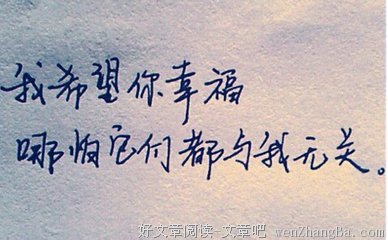 我希望你幸福
哪怕它们都与我无关。
好文章阅读-文章吧 wenZhangBa.com